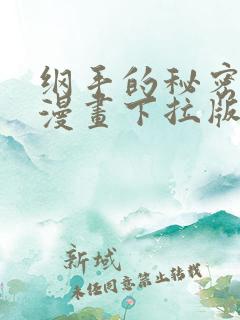 纲手的秘密
漫畫下拉版
新域
未经同意禁止转载